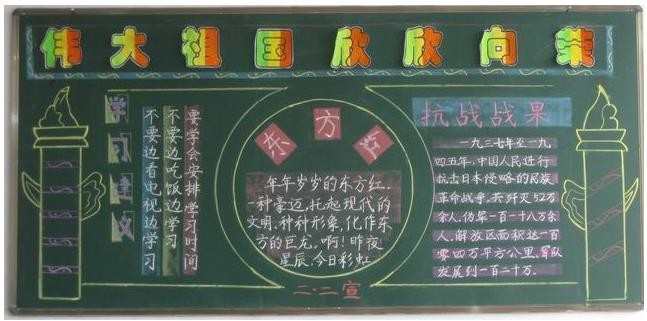 伟大祖国欣欣向荣
学习建议
要学会安排学习时间
不要边吃饭边学习
不要边看电视边学习
东方红
年年岁岁的东方红.
一种豪迈,托起现代的
文明.种种形象,化作东
方的巨龙。啊!昨夜
星辰.今日彩虹
抗战战果
一九三七年至一九
四五年,中国人民进行
抗击日本侵略的民族
革命战争.共歼灭52万
余人,伪军一百一十八万余
人.解放区面积达一百
零四万平方公里.军队
发展到一百二十万.
二·二宣